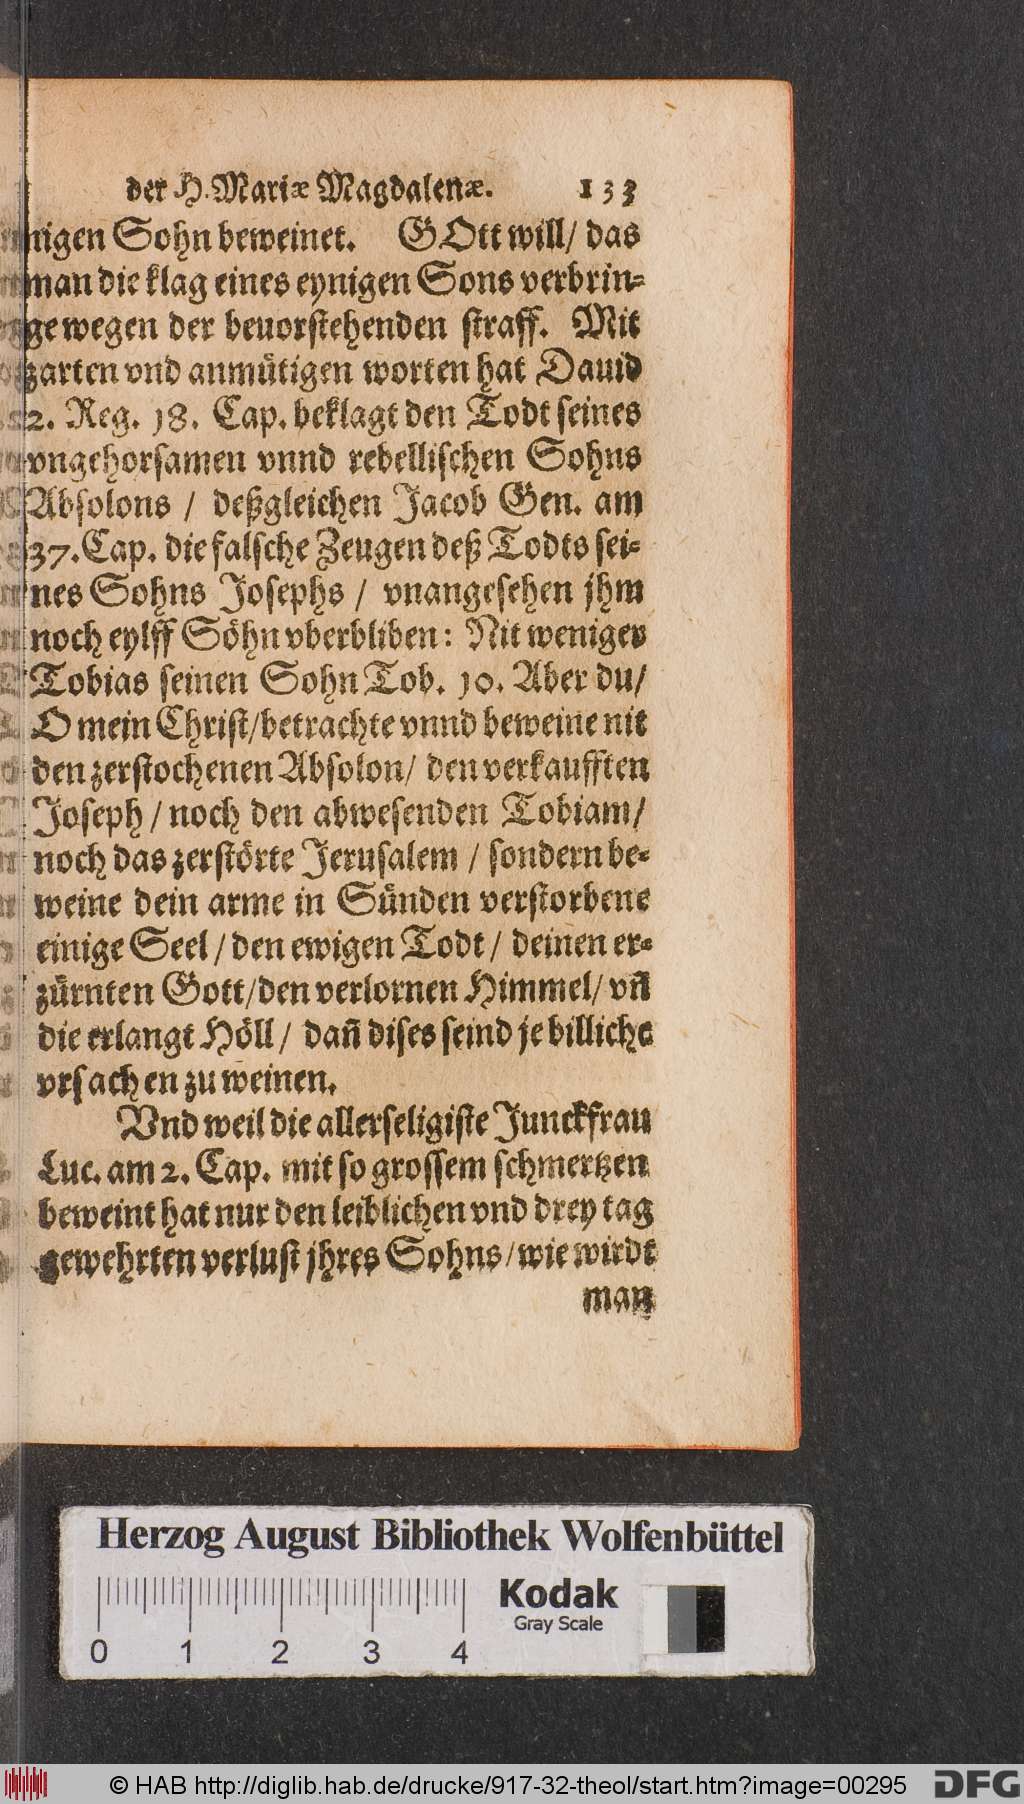 der H. Mariæ Magdalenæ. 133
nigen Sohn beweinet. GOtt will/ das
man die klag eines eynigen Sons verbrin-
ge wegen der beuorstehenden straff. Mit
zarten vnd anmütigen worten hat Dauid
2. Reg. 18. Cap. beklagt den Todt seines
vngehorsamen vnnd rebellischen Sohns
Absolons / deßgleichen Jacob Gen. am
37. Cap. die falsche Zeugen deß Todts sei-
nes Sohns Josephs / vnangesehen jhm
noch eylff Söhn vberbliben: Nit weniger
Tobias seinen Sohn Tob. 10. Aber du/
O mein Christ/ betrachte vnnd beweine nit
den zerstochenen Absolon/ den verkaufften
Joseph / noch den abwesenden Tobiam/
noch das zerstörte Jerusalem / sondern be-
weine dein arme in Sünden verstorbene
einige Seel / den ewigen Todt / deinen er-
zürnten Gott/ den verlornen Himmel/ vñ
die erlangt Höll / dañ dises seind je billiche
vrsachen zu weinen.
Vnd weil die allerseligiste Junckfrau
Luc. am 2. Cap. mit so grossem schmertzen
beweint hat nur den leiblichen vnd drey tag
gewehrten verlust jhres Sohns / wie wirdt
man
Herzog August Bibliothek Wolfenbüttel
Kodak
Gray Scale
0 1 2 3 4
© HAB http://diglib.hab.de/drucke/917-32-theol/start.htm?image=00295
DFG